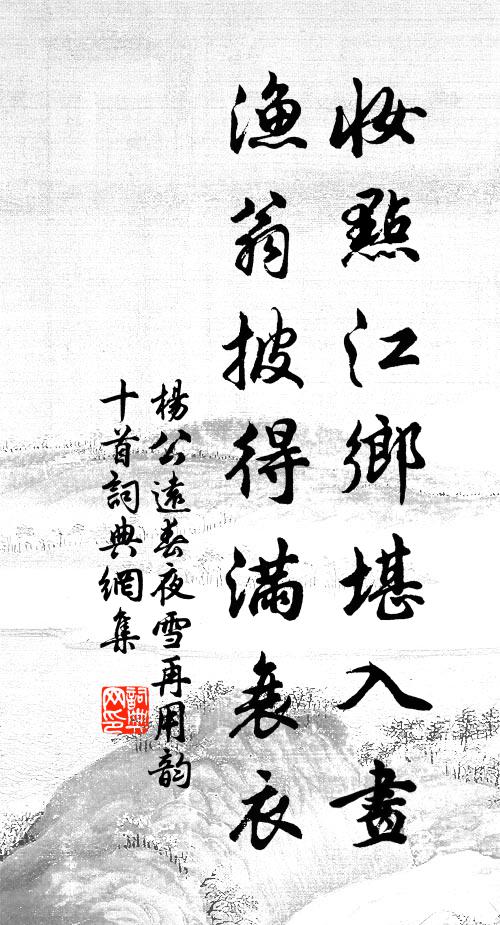 妝點江鄉堪入畫
漁翁披得滿衰衣
楊公遠春夜雪再用韵
十首詞典網集
詞典
网印